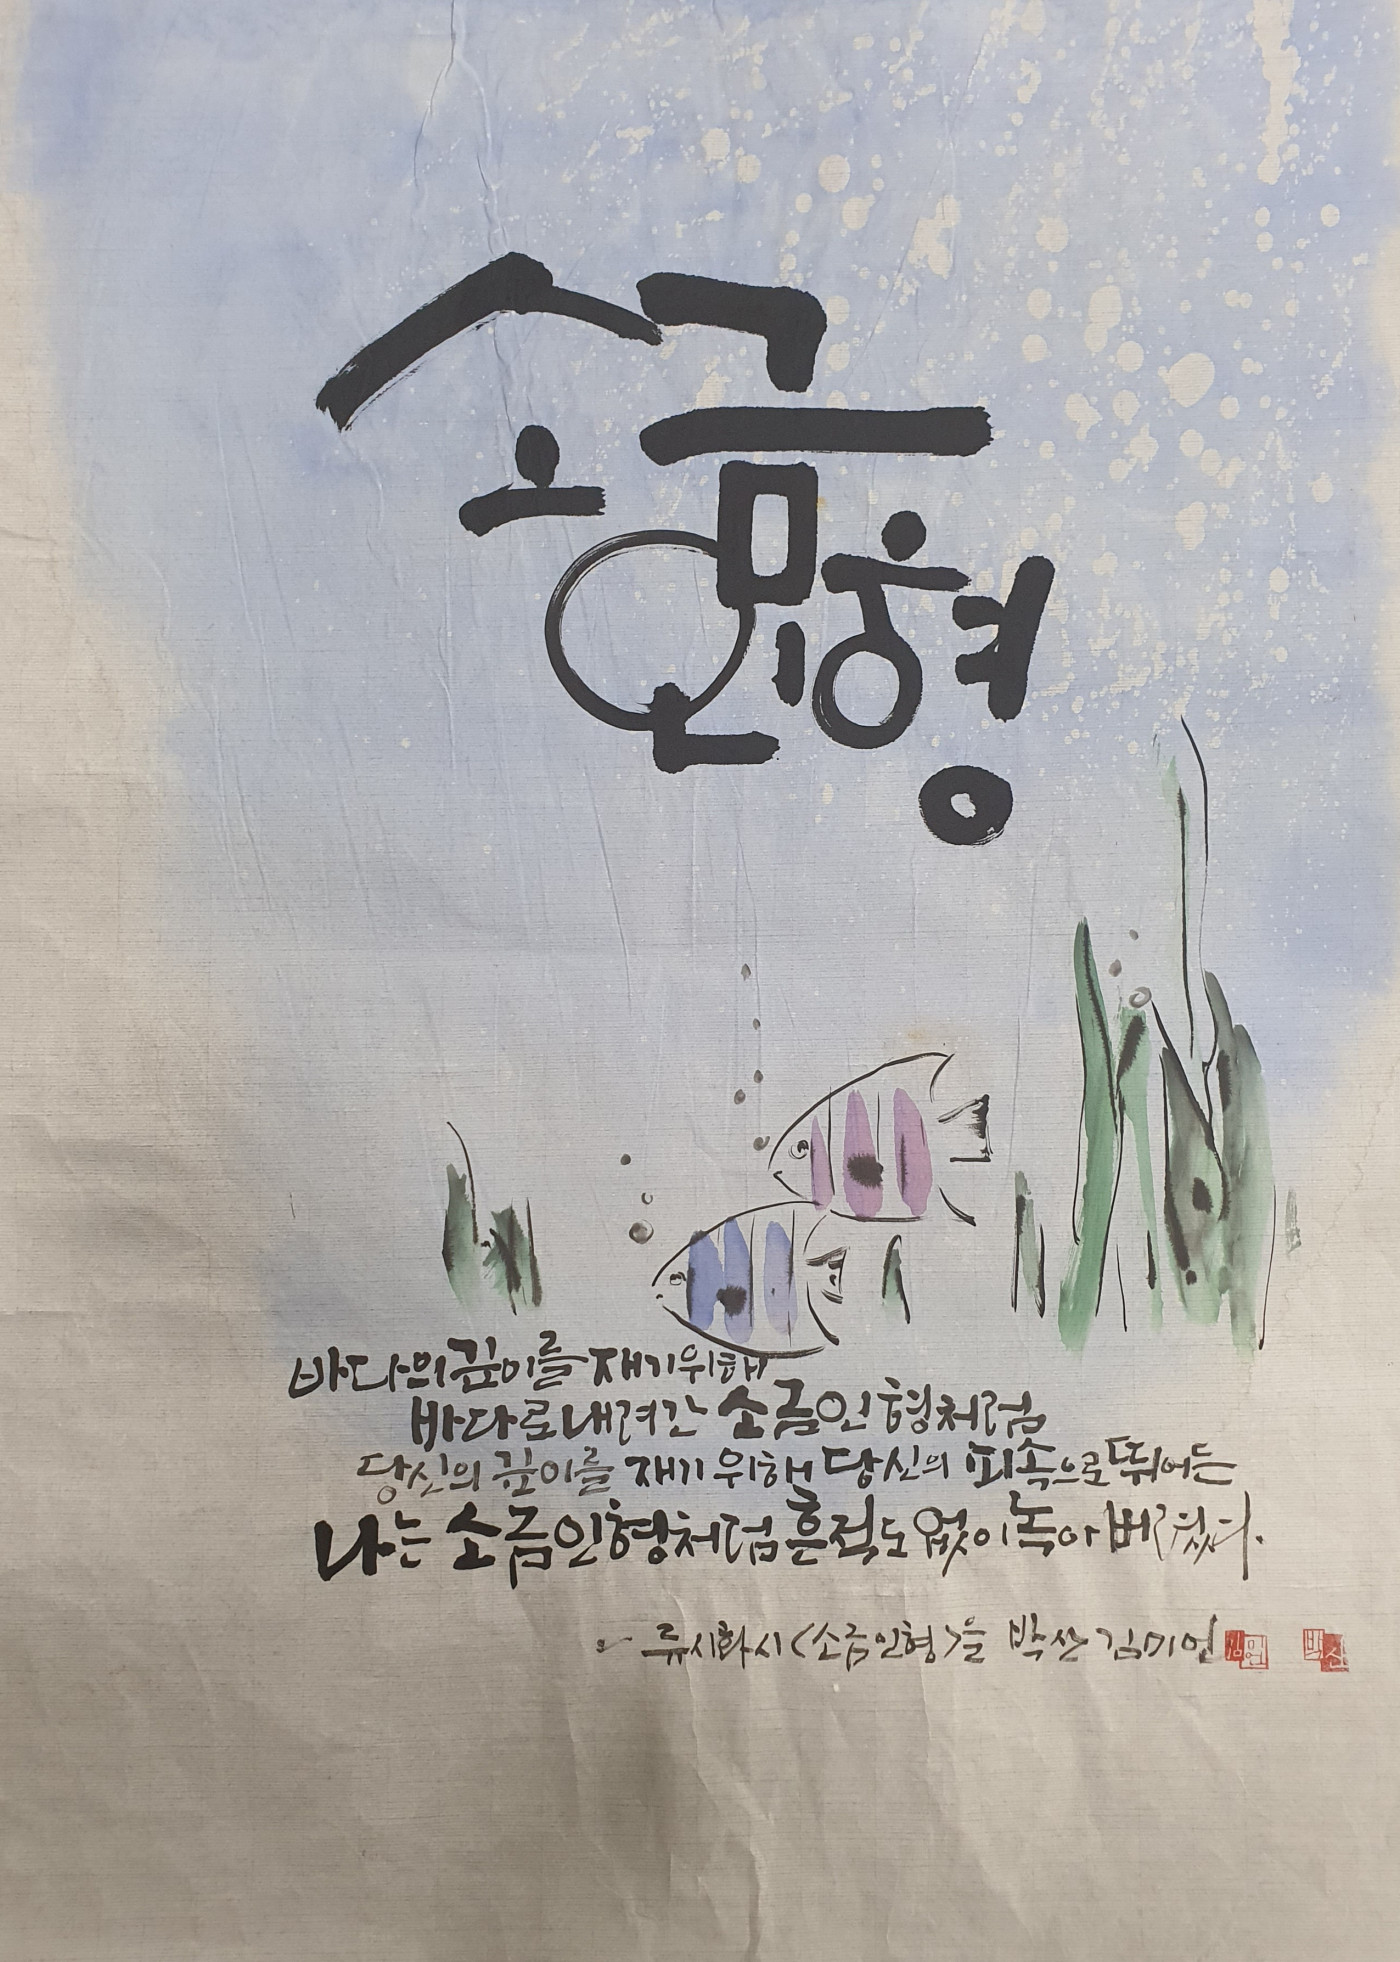 소금
인형
바다의 깊이를 재기위해
바다로 내려간 소금인형처럼
당신의 깊이를 재기 위해 당신의 피속으로 뛰어든
나는 소금인형처럼 흔적도 없이 녹아 버렸다.
류시화시 <소금인형>을 박산 김미연